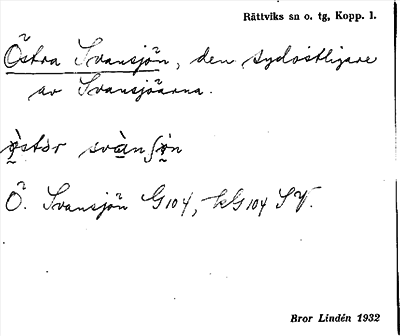 Rättviks sn o. tg, Kopp. l.
Östra Svansjön, den sydostligare
av Svansjöarna.
Ö. Svansjön G104, kG104 SV.
Bror Lindén 1932